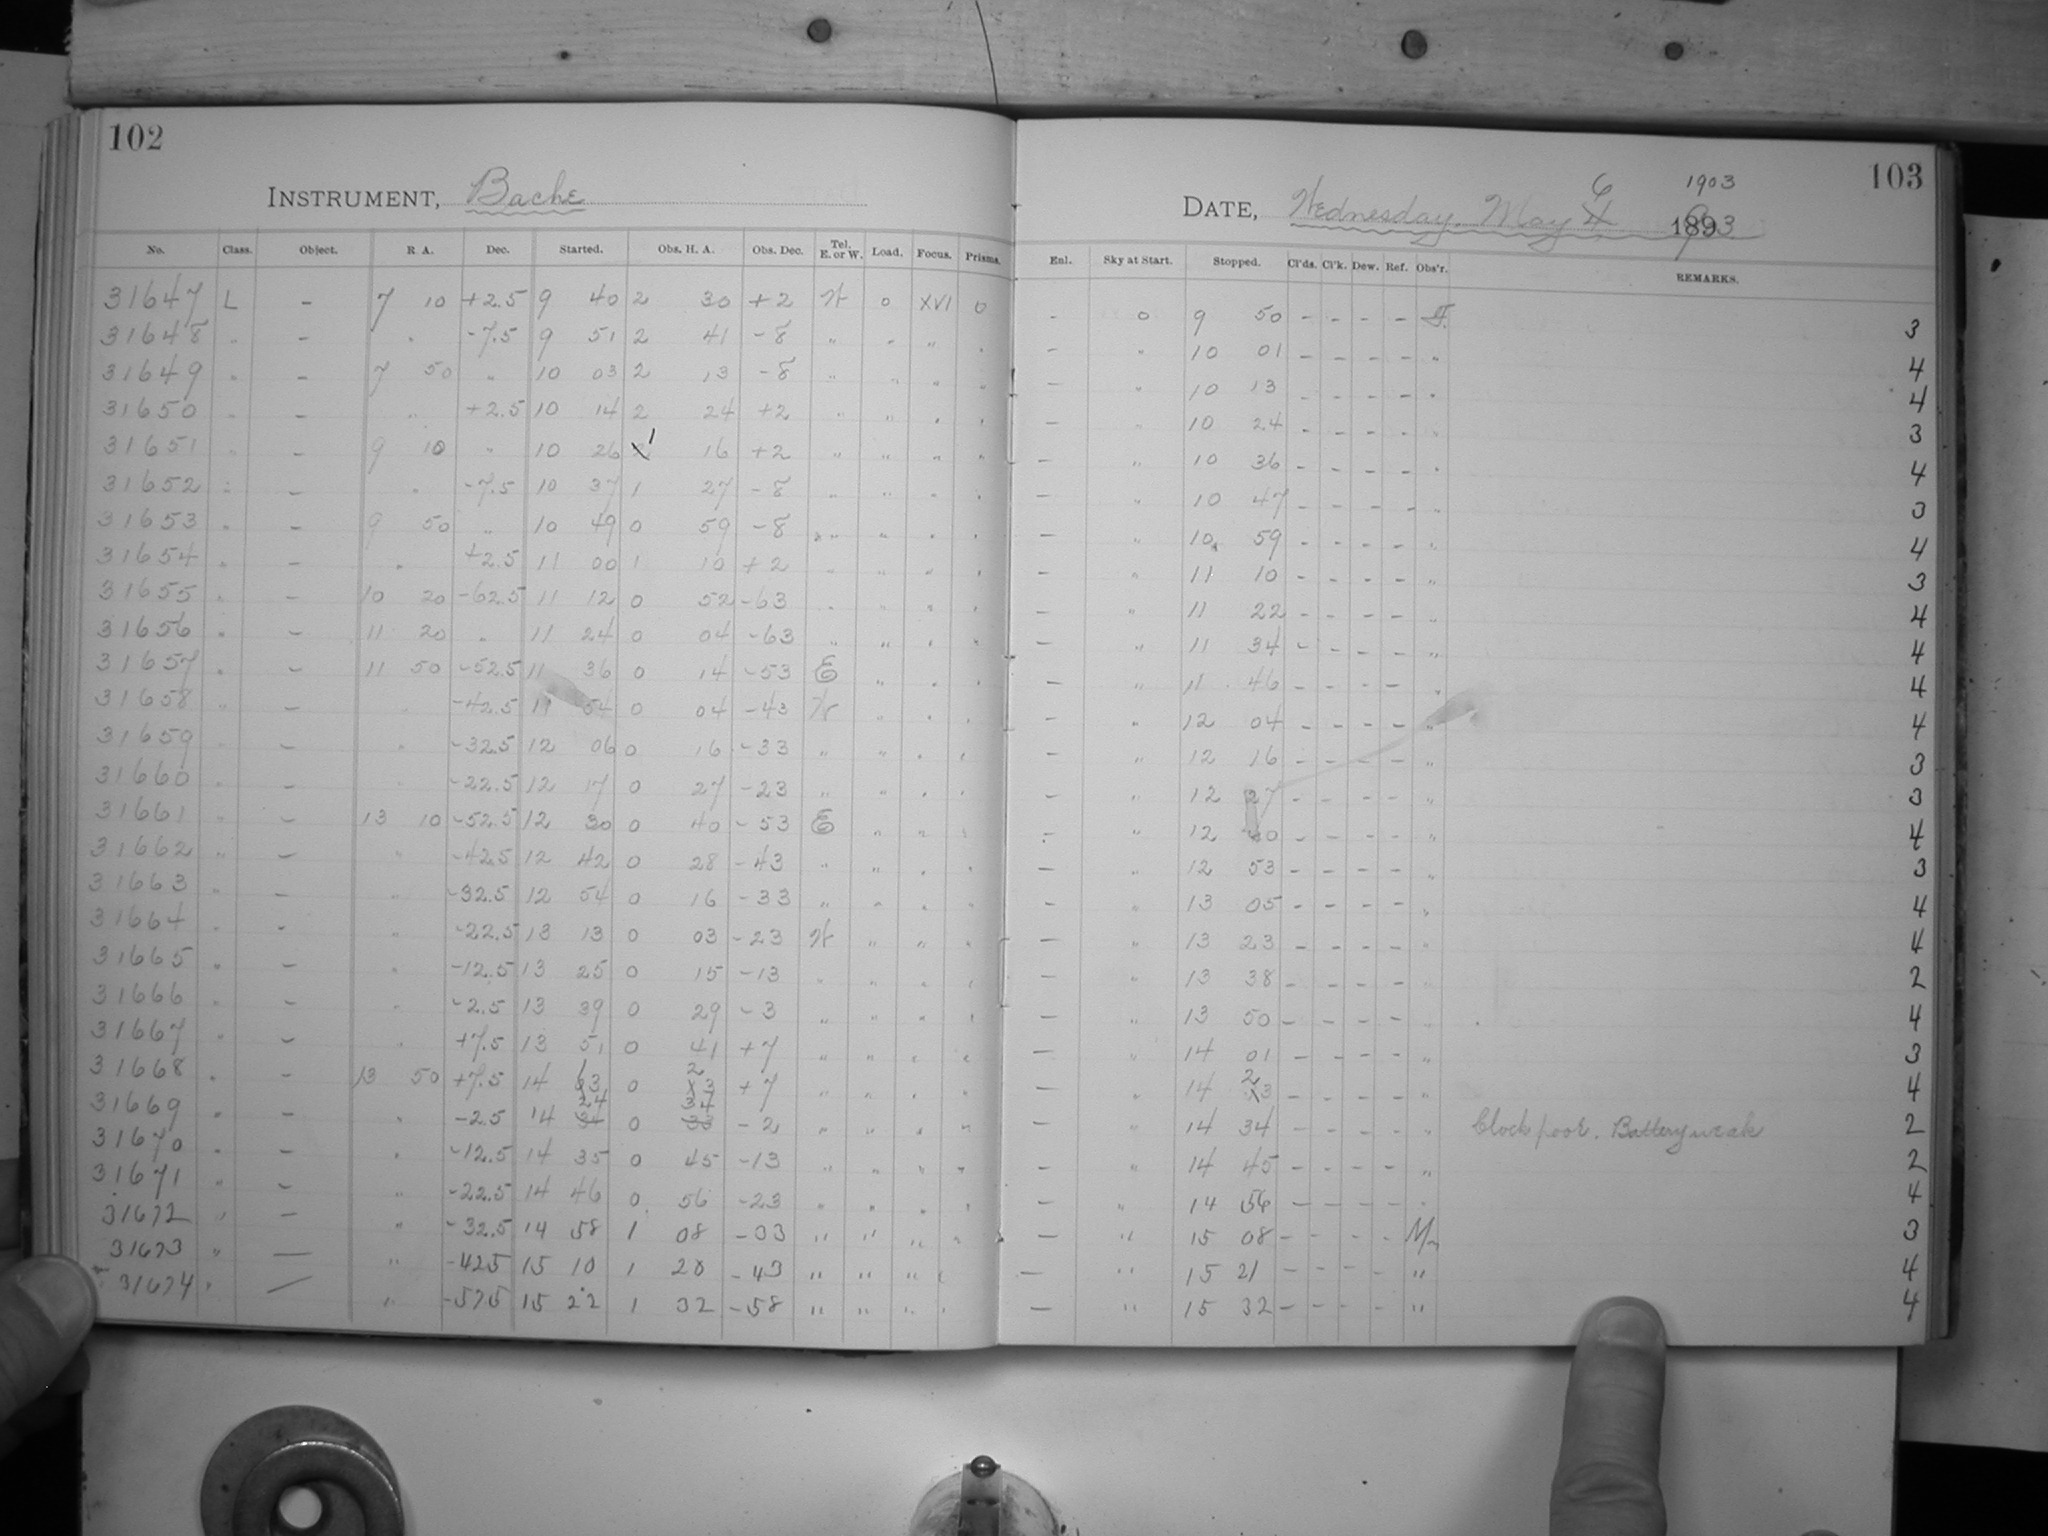 102
INSTRUMENT, Bache
No. Class. Object. R A. Dec. Started. Obs. H. A. Obs. Dec. Tel. E. or W. Load. Focus. Prisms.
31647 L – 7 10 +2.5 9 40 2 30 +2 W 0 XVI 0
31648 " – " -7.5 9 51 2 41 -8 " " " "
31649 " – 7 50 " 10 03 2 13 -8 " " " "
31650 " – " +2.5 10 14 2 24 +2 " " " "
31651 " – 9 10 " 10 26 1 16 +2 " " " "
31652 " – " -7.5 10 37 1 27 -8 " " " "
31653 " – 9 50 " 10 49 0 59 -8 " " " "
31654 " – " +2.5 11 00 1 10 +2 " " " "
31655 " – 10 20 -62.5 11 12 0 52 -63 " " " "
31656 " – 11 20 " 11 24 0 04 -63 " " " "
31657 " – 11 50 -52.5 11 36 0 14 -53 E " " "
31658 " – " -42.5 11 54 0 04 -43 W " " "
31659 " – " -32.5 12 06 0 16 -33 " " " "
31660 " – " -22.5 12 17 0 27 -23 " " " "
31661 " – 13 10 -52.5 12 30 0 40 -53 E " " "
31662 " – " -42.5 12 42 0 28 -43 " " " "
31663 " – " -32.5 12 54 0 16 -33 " " " "
31664 " – " -22.5 13 13 0 03 -23 W " " "
31665 " – " -12.5 13 25 0 15 -13 " " " "
31666 " – " -2.5 13 39 0 29 -3 " " " "
31667 " – " +7.5 13 51 0 41 +7 " " " "
31668 " – 13 50 +7.5 14 13 0 23 +7 " " " "
31669 " – " -2.5 14 24 0 34 -2 " " " "
31670 " – " -12.5 14 35 0 45 -13 " " " "
31671 " – " -22.5 14 46 0 56 -23 " " " "
31672 " – " -32.5 14 58 1 08 -33 " " " "
31673 " – " -425 15 10 1 20 -43 " " " "
31674 " – " -575 15 22 1 32 -58 " " " "
103
1903
DATE, Wednesday, May 6 1893
Enl. Sky at Start. Stopped. Cl'ds. Cl'k. Dew. Ref. Obs'r. REMARKS.
– 0 9 50 – – – – 3
– " 10 01 – – – – " 4
– " 10 13 – – – – " 4
– " 10 24 – – – – " 3
– " 10 36 – – – – " 4
– " 10 47 – – – – " 3
– " 10 59 – – – – " 4
– " 11 10 – – – – " 3
– " 11 22 – – – – " 4
– " 11 34 – – – – " 4
– " 11 46 – – – – " 4
– " 12 04 – – – – " 4
– " 12 16 – – – – " 3
– " 12 27 – – – – " 3
– " 12 40 – – – – " 4
– " 12 53 – – – – " 3
– " 13 05 – – – – " 4
– " 13 23 – – – – " 4
– " 13 38 – – – – " 2
– " 13 50 – – – – " 4
– " 14 01 – – – – " 3
– " 14 23 – – – – " 4
– " 14 34 – – – – " Clock poor. Battery weak 2
– " 14 45 – – – – " 2
– " 14 56 – – – – " 4
– " 15 08 – – – – M 3
– " 15 21 – – – – " 4
– " 15 32 – – – – " 4